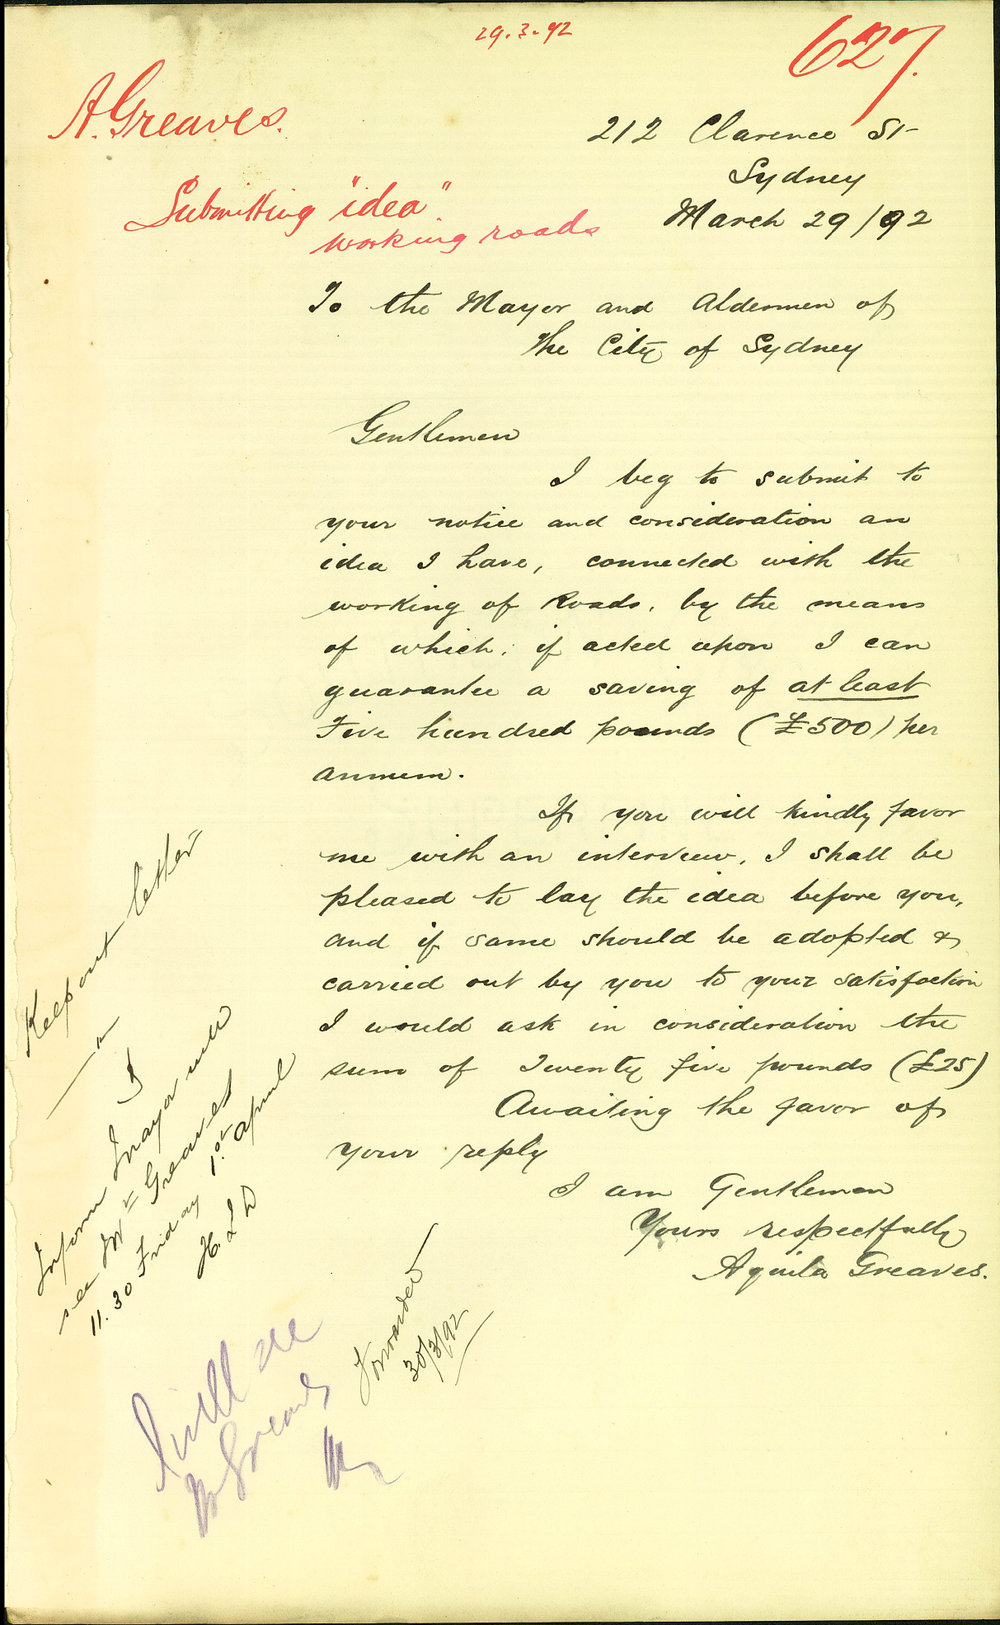 29.3.92
627.
A. Greaves.
Submitting "idea".
working roads
212 Clarence St
Sydney
March 29/92
To the Mayor and Aldermen of
the City of Sydney
Gentlemen
I beg to submit to
your notice and consideration an
idea I have, connected with the
working of Roads, by the means
of which, if acted upon I can
guarantee a saving of at least
Five hundred pounds (£500) per
annum.
If you will kindly favor
me with an interview, I shall be
pleased to lay the idea before you,
and if same should be adopted &
carried out by you to your satisfaction
I would ask in consideration the
sum of Twenty five pounds (£25)
Awaiting the favor of
your reply
I am Gentlemen
Yours respectfully
Aquila Greaves.
Keep out letter
Inform Mayor will
see Mr Greaves
11.30 Friday 1st April
H.L.D
I will see
Mr Greaves
Forwarded
30/3/92